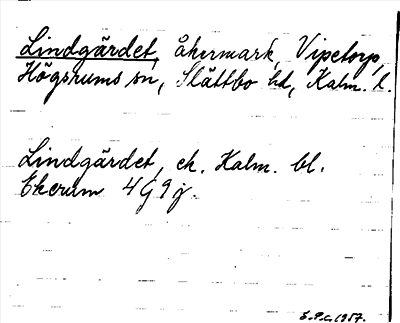 Lindgärdet, åkermark, Vipetorp,
Högsrums sn, Slättbo hd, Kalm. l.
Lindgärdet, ek. Kalm. bl.
Ekerum 4G9j.
S.P.C. 1957.